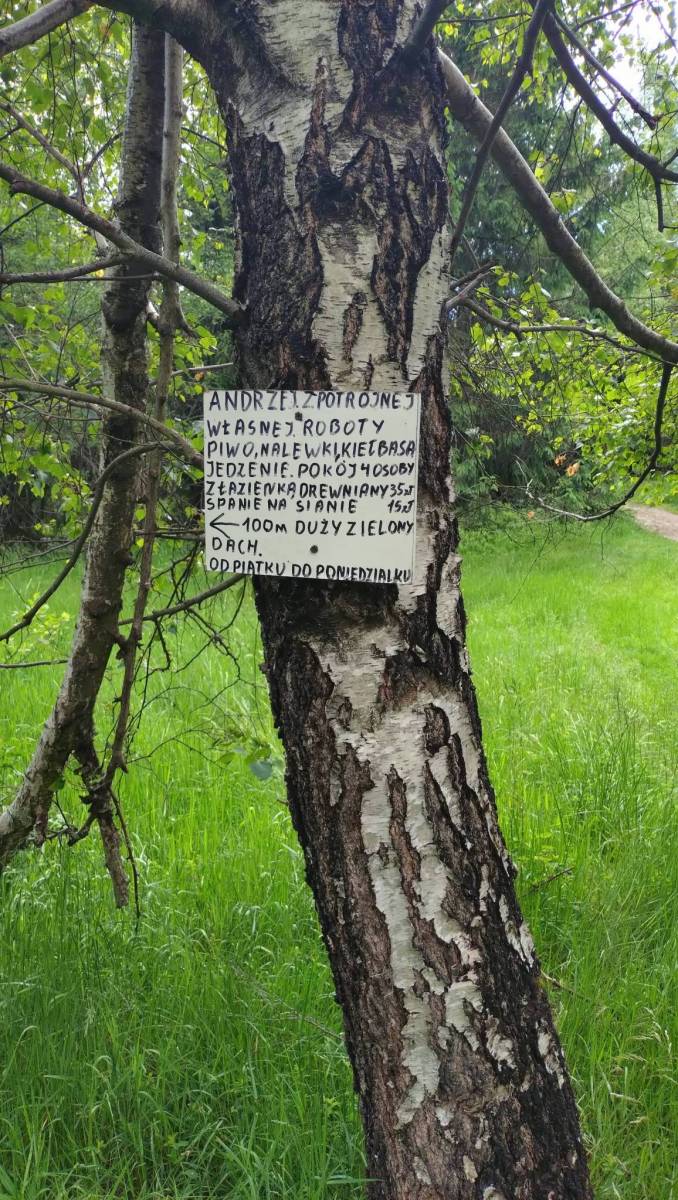 ANDRZEJ Z POTRÓJNEJ
WŁASNEJ. ROBOTY
PIWO, NALEWKI, KIEŁBASA
JEDZENIE. POKÓJ 4 OSOBY
Z ŁAZIENKĄ DREWNIANY 35 zł
SPANIE NA SIANIE 15 zł
← 100m DUŻY ZIELONY
DACH.
OD PIĄTKU DO PONIEDZIAŁKU